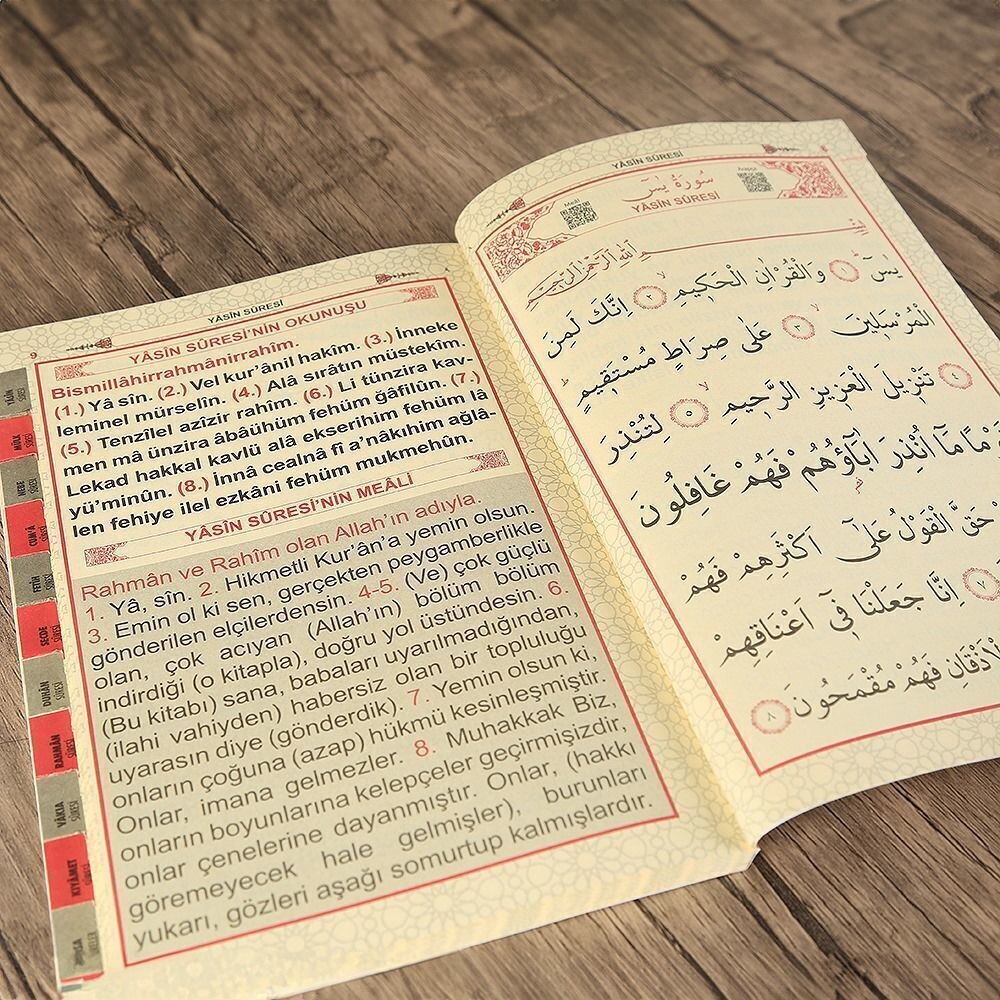 9
YÂSÎN SÛRESİ
YÂSÎN SÛRESİ'NİN OKUNUŞU
Bismillâhirrahmânirrahîm.
(1.) Yâ sîn. (2.) Vel kur'ânil hakîm. (3.) İnneke
leminel mürselîn. (4.) Alâ sırâtın müstekîm.
(5.) Tenzîlel azîzir rahîm. (6.) Li tünzira kav-
men mâ ünzira âbâühüm fehüm ğâfilûn. (7.)
Lekad hakkal kavlü alâ ekserihim fehüm lâ
yü'minûn. (8.) İnnâ cealnâ fî a'nâkıhim ağlâ-
len fehiye ilel ezkâni fehüm mukmehûn.
YÂSÎN SÛRESİ'NİN MEÂLİ
Rahmân ve Rahîm olan Allah'ın adıyla.
1. Yâ, sîn. 2. Hikmetli Kur'ân'a yemin olsun.
3. Emin ol ki sen, gerçekten peygamberlikle
gönderilen elçilerdensin. 4-5. (Ve) çok güçlü
olan, çok acıyan (Allah'ın) bölüm bölüm
indirdiği (o kitapla), doğru yol üstündesin. 6.
(Bu kitabı) sana, babaları uyarılmadığından,
(ilahi vahiyden) habersiz olan bir topluluğu
uyarasın diye (gönderdik). 7. Yemin olsun ki,
onların çoğuna (azap) hükmü kesinleşmiştir.
Onlar, imana gelmezler. 8. Muhakkak Biz,
onların boyunlarına kelepçeler geçirmişizdir,
onlar çenelerine dayanmıştır. Onlar, (hakkı
göremeyecek hale gelmişler), burunları
yukarı, gözleri aşağı somurtup kalmışlardır.
YÂSİN SÛRESİ
MÜLK SÛRESİ
NEBE SÛRESİ
CUM'A SÛRESİ
FETİH SÛRESİ
SECDE SÛRESİ
DUHÂN SÛRESİ
RAHMÂN SÛRESİ
VÂKIA SÛRESİ
KIYÂMET SÛRESİ
YÂSÎN SÛRESİ
Meâli
سُورَةُ يٰسٓ
Arapça
YÂSÎN SÛRESİ
بِسْمِ اللّٰهِ الرَّحْمٰنِ الرَّحِيمِ
يٰسٓ ﴿١﴾ وَالْقُرْاٰنِ الْحَكٖيمِ ﴿٢﴾ اِنَّكَ لَمِنَ
الْمُرْسَلٖينَ ﴿٣﴾ عَلٰى صِرَاطٍ مُسْتَقٖيمٍ
تَنْزٖيلَ الْعَزٖيزِ الرَّحٖيمِ ﴿٥﴾ لِتُنْذِرَ
مَا اُنْذِرَ اٰبَاؤُهُمْ فَهُمْ غَافِلُونَ
حَقَّ الْقَوْلُ عَلٰٓى اَكْثَرِهِمْ فَهُمْ
﴿٧﴾ اِنَّا جَعَلْنَا فٖٓى اَعْنَاقِهِمْ
الْاَذْقَانِ فَهُمْ مُقْمَحُونَ ﴿٨﴾